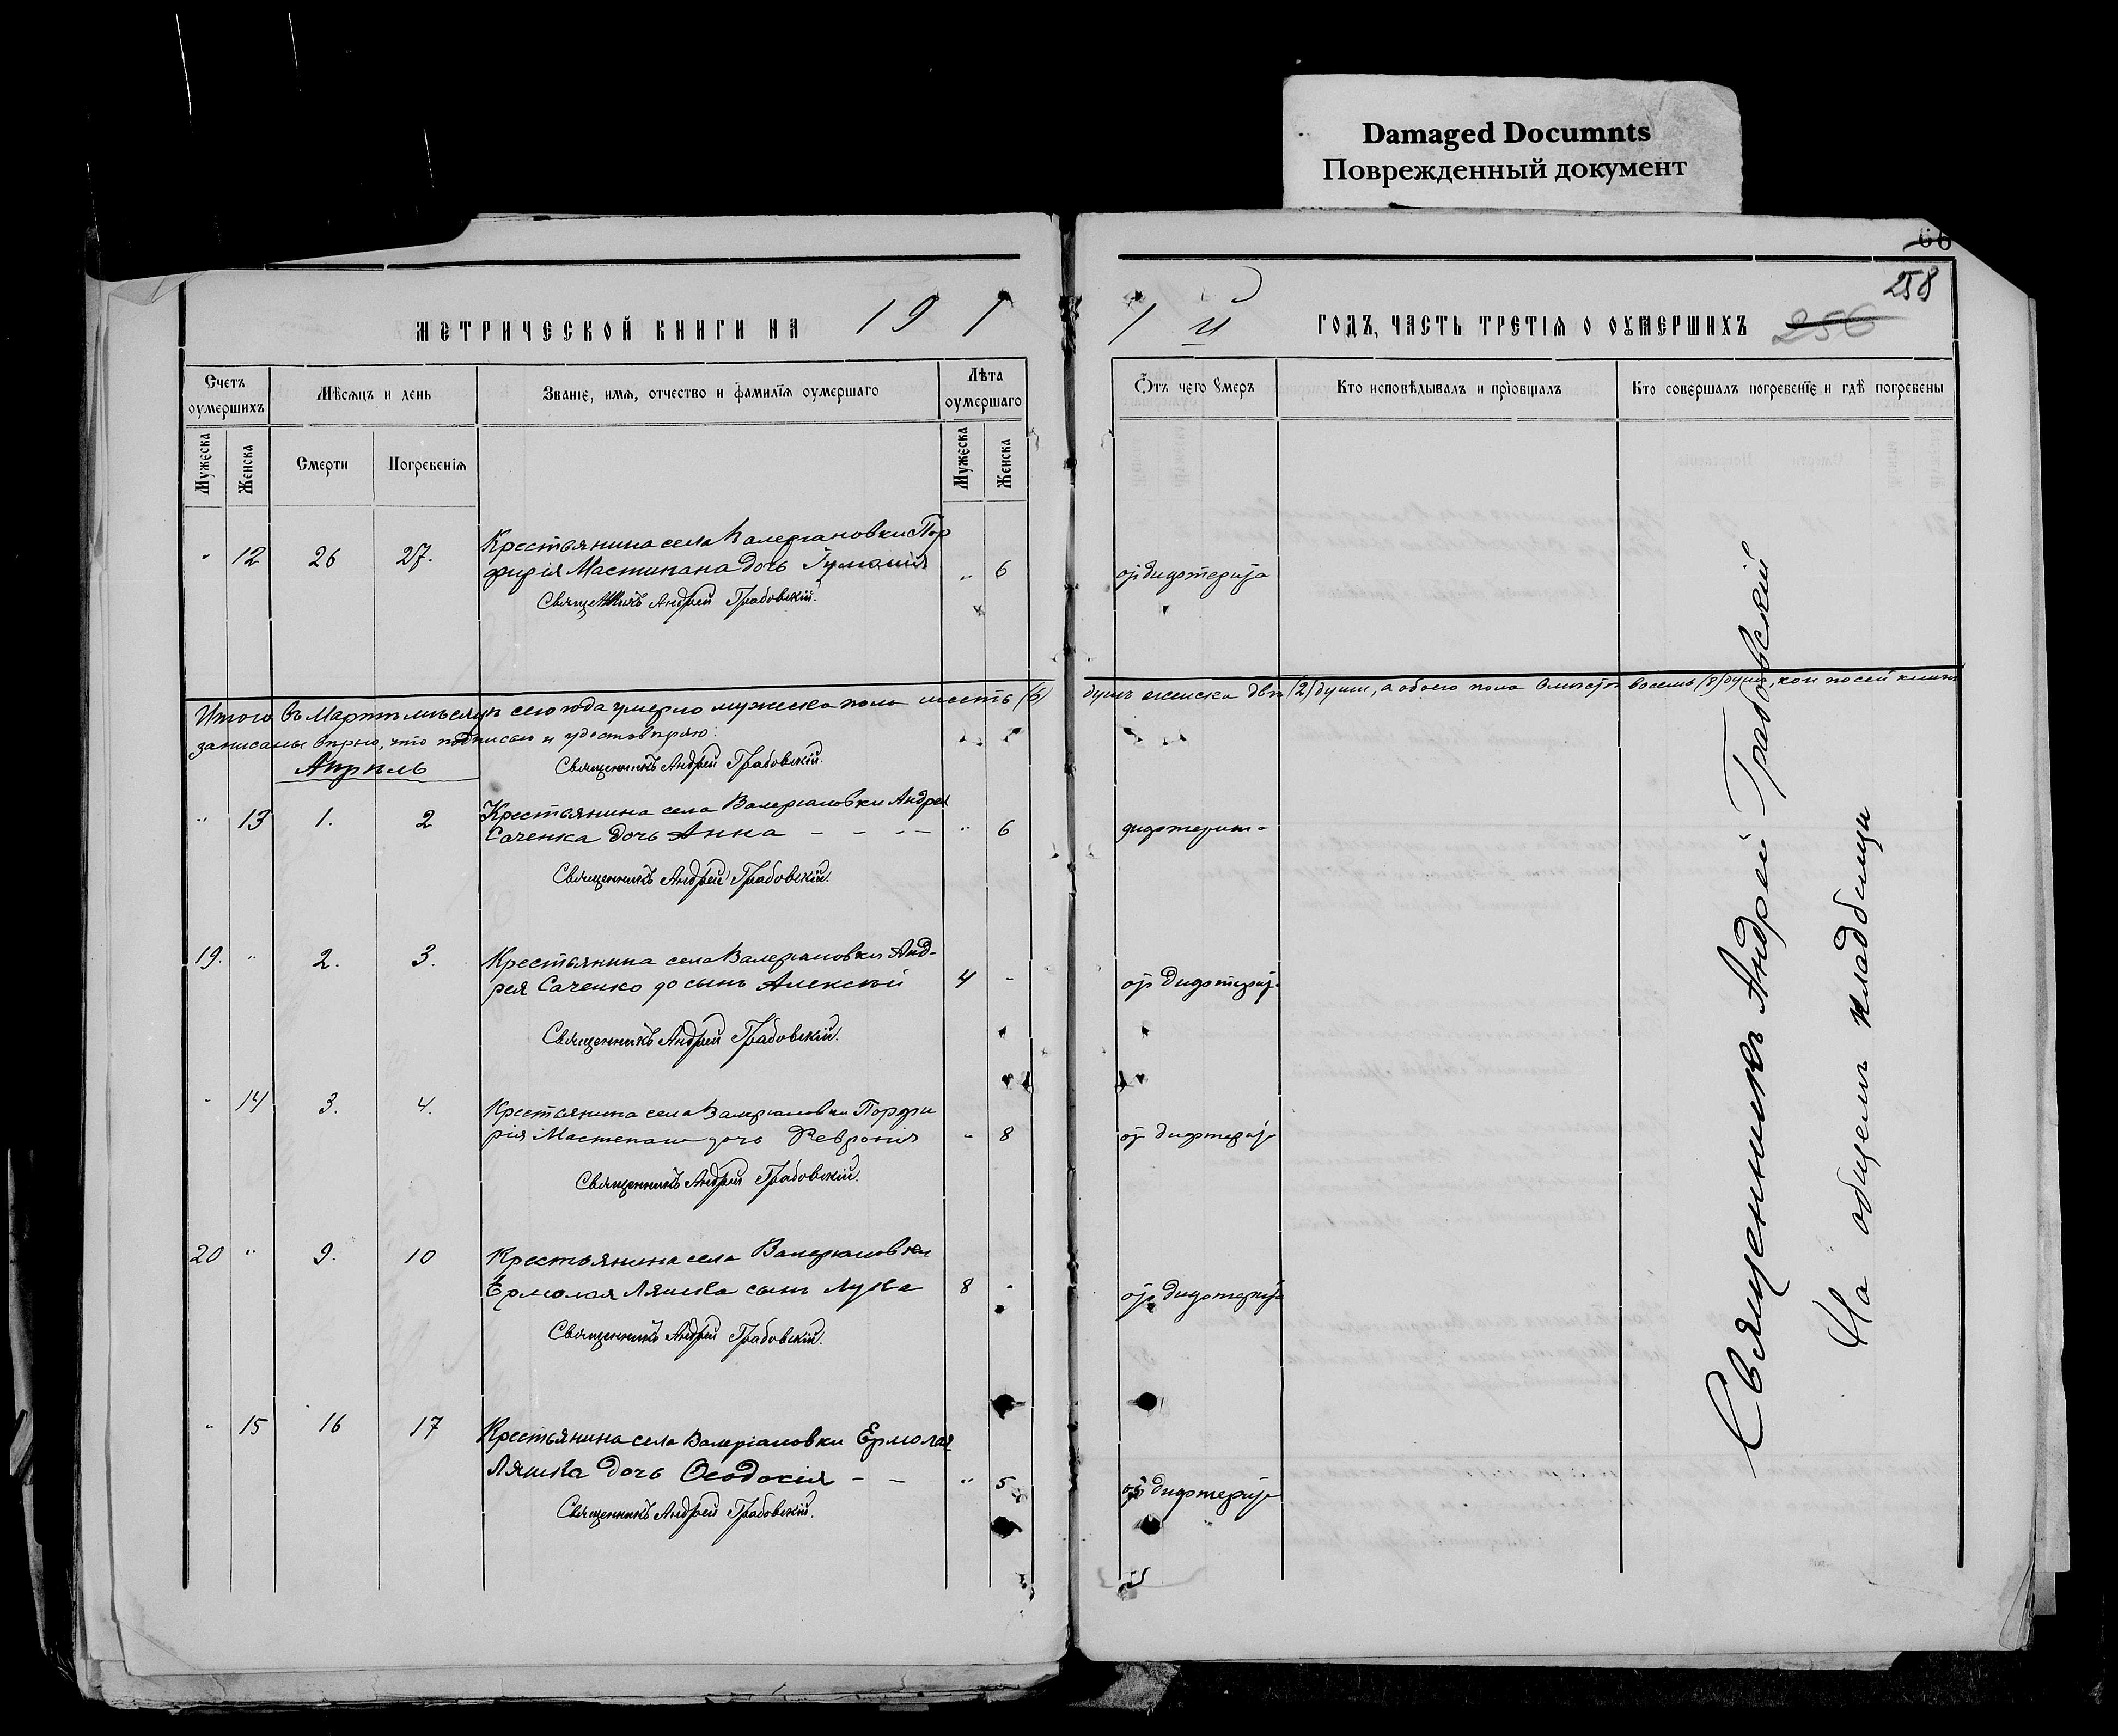 Damaged Documnts
Поврежденный документ
66
258
256
МЕТРИЧЕСКОЙ КНИГИ НА 191
1 й ГОДЪ, ЧАСТЬ ТРЕТІЯ О ОУМЕРШИХЪ
Счетъ оумершихъ
Мѣсяцъ и день
Званіе, имя, отчество и фамилія оумершаго
Лѣта оумершаго
Отъ чего Смеръ
Кто исповѣдывалъ и пріобщалъ
Кто совершалъ погребеніе и гдѣ погребены
Мужеска
Женска
Смерти
Погребенія
Мужеска
Женска
" 12 26 27. Крестьянина села Валеріановки Пор
фирія Мастипана дочь " 6 от дифтерита
Священникъ Андрей Грабовскій.
Итого въ Мартѣ мѣсяцѣ сего года умерло мужеска пола шесть (6) душъ женска двѣ (2) души, а обоего пола вмѣстѣ восемь (8) душъ, кои по сей книгѣ
записаны вѣрно, что подписью и удостовѣряю:
Апрѣль
Священникъ Андрей Грабовскій.
" 13 1. 2 Крестьянина села Валеріановки Андрея
Саченка дочь Анна - - - - " 6 дифтерит
Священникъ Андрей Грабовскій.
19. " 2. 3. Крестьянина села Валеріановки Анд-
рея Саченко сынъ Алексѣй 4 - от дифтерита
Священникъ Андрей Грабовскій.
" 14 3. 4. Крестьянина села Валеріановки Порфи
рія Мастепана дочь Февронія " 8 от дифтерита
Священникъ Андрей Грабовскій.
20 " 9. 10 Крестьянина села Валеріановки
Ермолая Ляшка сынъ Лука 8 - от дифтерита
Священникъ Андрей Грабовскій.
" 15 16 17 Крестьянина села Валеріановки Ермолая
Ляшка дочь Ѳеодосія - - " 5 от дифтерита
Священникъ Андрей Грабовскій.
Священникъ Андрей Грабовскій
На общемъ кладбищи